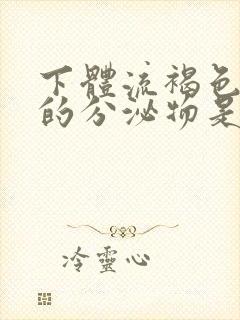 下體流褐色
的分泌物是
冷靈心